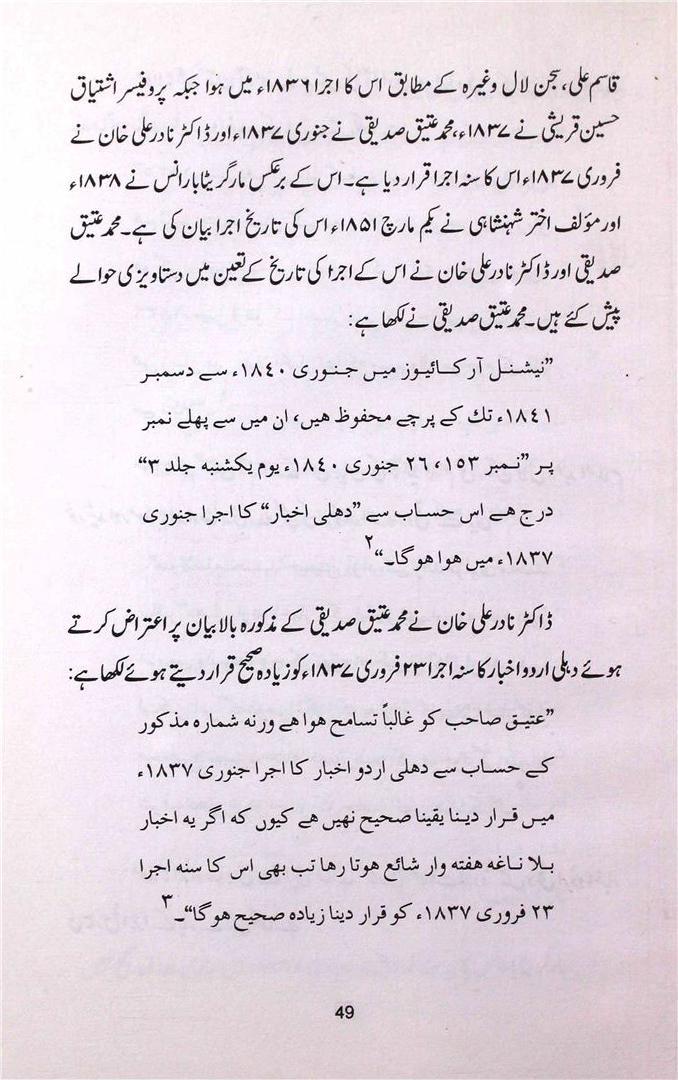 قاسم علی، سجن لال وغیرہ کے مطابق اس کا اجرا ۱۸۳۶ء میں ہوا جبکہ پروفیسر اشتیاق
حسین قریشی نے ۱۸۳۷ء، محمد عتیق صدیقی نے جنوری ۱۸۳۷ء اور ڈاکٹر نادر علی خان نے
فروری ۱۸۳۷ء اس کا سنہ اجرا قرار دیا ہے۔ اس کے برعکس مارگریٹا بارانس نے ۱۸۳۸ء
اور مؤلف اختر شہنشاہی نے یکم مارچ ۱۸۵۱ء اس کی تاریخ اجرا بیان کی ہے۔ محمد عتیق
صدیقی اور ڈاکٹر نادر علی خان نے اس کے اجرا کی تاریخ کے تعین میں دستاویزی حوالے
پیش کئے ہیں۔ محمد عتیق صدیقی نے لکھا ہے:
”نیشنل آرکائیوز میں جنوری ۱۸۴۰ء سے دسمبر
۱۸۴۱ء تك کے پرچے محفوظ ھیں، ان میں سے پھلے نمبر
پر ”نمبر ۱۵۳، ۲۶ جنوری ۱۸۴۰ء یوم یکشنبه جلد ۳“
درج ھے اس حساب سے ”دھلی اخبار“ کا اجرا جنوری
۱۸۳۷ء میں ھوا ھوگا۔“۲
ڈاکٹر نادر علی خان نے محمد عتیق صدیقی کے مذکورہ بالا بیان پر اعتراض کرتے
ہوئے دہلی اردو اخبار کا سنہ اجرا ۲۳ فروری ۱۸۳۷ء کو زیادہ صحیح قرار دیتے ہوئے لکھا ہے:
”عتیق صاحب کو غالباً تسامح ھوا ھے ورنه شماره مذکور
کے حساب سے دھلی اردو اخبار کا اجرا جنوری ۱۸۳۷ء
میں قرار دینا یقینا صحیح نھیں ھے کیوں که اگر یه اخبار
بلا ناغه ھفته وار شائع ھوتا رھا تب بھی اس کا سنه اجرا
۲۳ فروری ۱۸۳۷ء کو قرار دینا زیاده صحیح ھوگا“۔۳
49